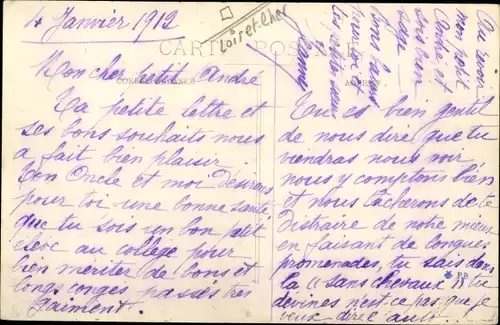 4 Janvier 1912
Loir et Cher
CARTE POSTALE
CORRESPONDANCE
Mon cher petit André
Ta petite lettre et
ses bons souhaits nous
a fait bien plaisir.
Ton Oncle et moi désirons
pour toi une bonne santé
que tu sois un bon petit
élève au collège pour
bien mériter de bons et
longs congés passés très
gaiment.
Tu es bien gentil
de nous dire que tu
viendras nous voir
nous y comptons bien
et nous tâcherons de te
distraire de notre mieux
en faisant de longues
promenades, tu sais dans
la "sans chevaux" tu
devines n'est ce pas que je
veux dire auto.
Au revoir
mon petit
André et
sois bien
sage
Bons baisers